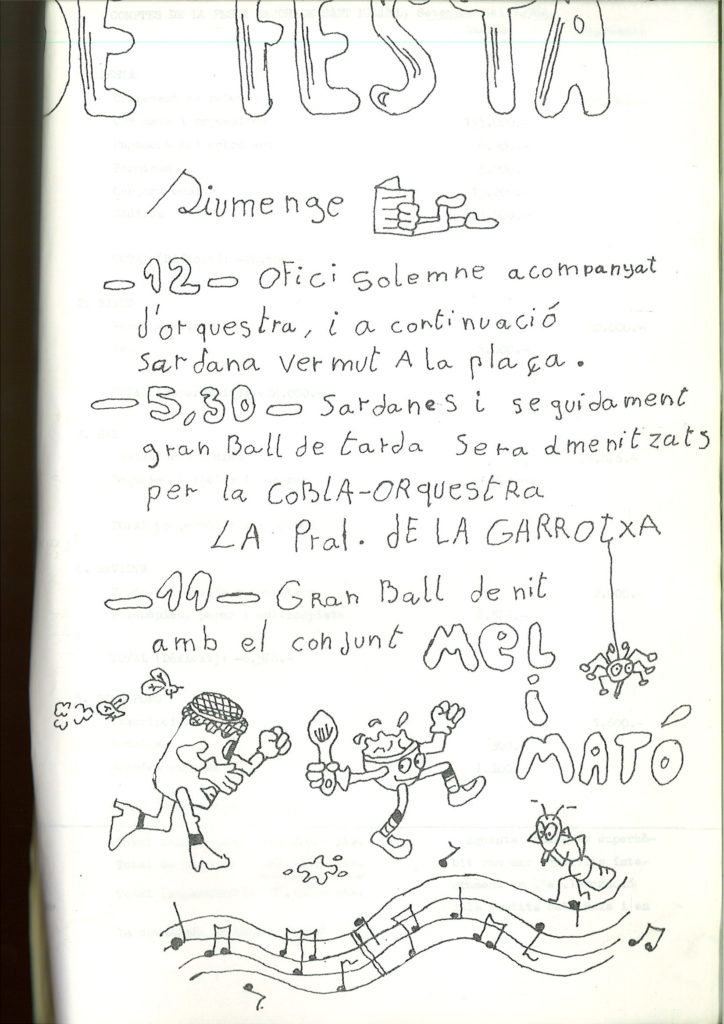 DE FESTA
Diumenge
-12- Ofici solemne acompanyat
d'orquestra, i a continuació
sardana vermut A la plaça.
-5,30- Sardanes i seguidament
gran Ball de tarda Sera dmenitzats
per la COBLA-ORquestra
LA Pral. dE LA GARROTXA
-11- GRan Ball de nit
amb el conjunt MEL
i
MATÓ